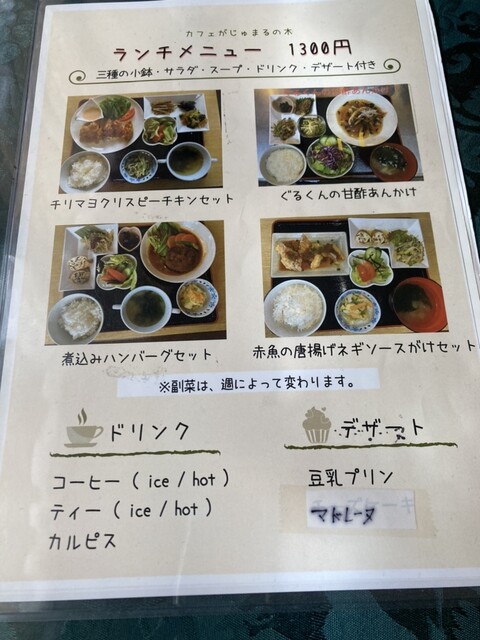 カフェがじゅまるの木
ランチメニュー 1300円
三種の小鉢・サラダ・スープ・ドリンク・デザート付き
チリマヨクリスピーチキンセット
ぐるくんの甘酢あんかけ
煮込みハンバーグセット
赤魚の唐揚げネギソースがけセット
※副菜は、週によって変わります。
ドリンク
コーヒー ( ice / hot )
ティー ( ice / hot )
カルピス
デザート
豆乳プリン
マドレーヌ